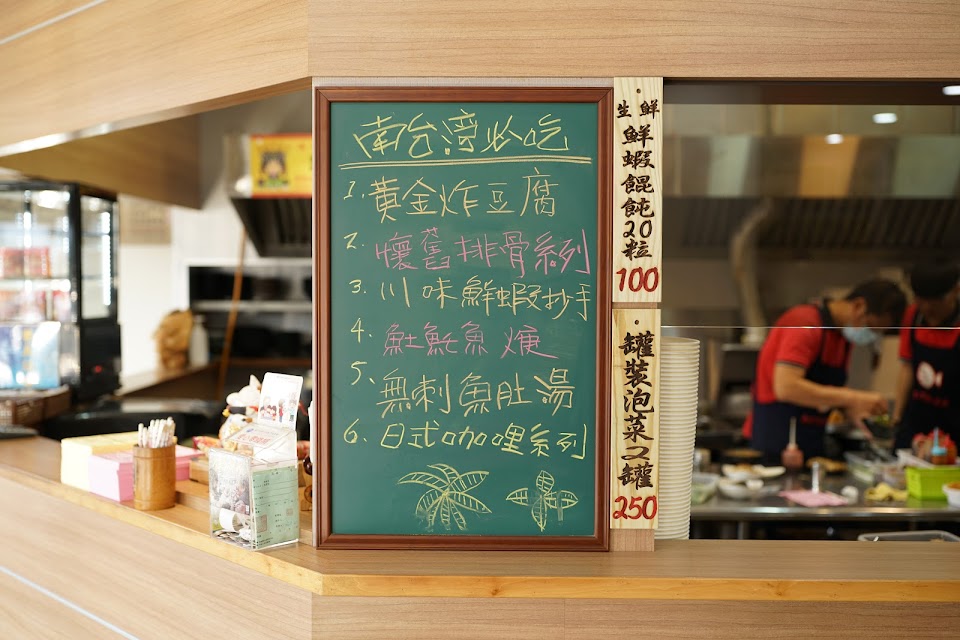 南台灣必吃
1. 黃金炸豆腐
2. 懷舊排骨系列
3. 川味鮮蝦抄手
4. 魠魠魚焿
5、無刺魚肚湯
6. 日式咖哩系列
生鮮
鮮蝦餛飩20粒
100
罐裝泡菜2罐
250